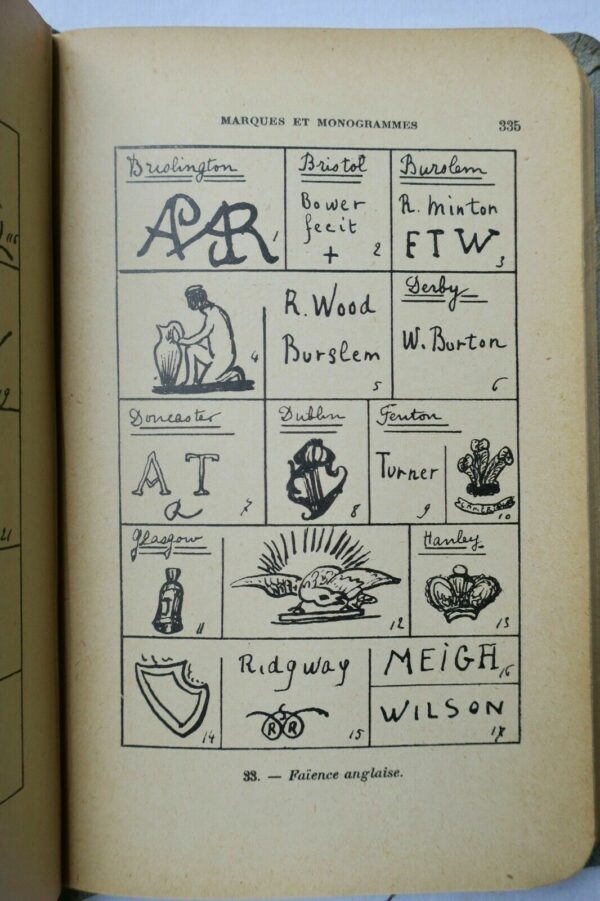 MARQUES ET MONOGRAMMES 335
Brislington
APR
1
Bristol
Bower
fecit
+
2
Burslem
R. Minton
FTW
3
4
R. Wood
Burslem
5
Derby
W. Burton
6
Doncaster
A T
7
Dublin
8
Fenton
Turner
9
10
Glasgow
11
12
Hanley
13
14
Ridgway
R R
15
MEIGH
16
WILSON
17
33. — Faïence anglaise.